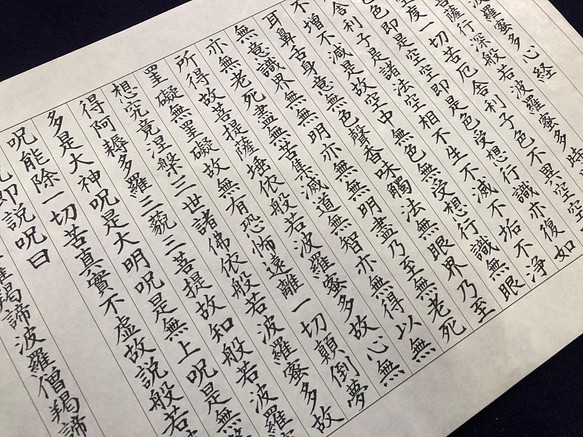 波羅蜜多心経
菩薩行深般若波羅蜜多時
空度一切苦厄舎利子色不異空空
色即是空空即是色受想行識亦復如
舎利子是諸法空相不生不滅不垢不浄
不増不減是故空中無色無受想行識無眼
耳鼻舌身意無色聲香味觸法無眼界乃至
無意識界無無明亦無無明盡乃至無老死
亦無老死盡無苦集滅道無智亦無得以無
所得故菩提薩埵依般若波羅蜜多故心無
罣礙無罣礙故無有恐怖遠離一切顛倒夢
想究竟涅槃三世諸佛依般若波羅蜜多故
得阿耨多羅三藐三菩提故知般若波羅
多是大神呪是大明呪是無上呪是無
呪能除一切苦真實不虚故説般若
呪即説呪曰
羯諦波羅僧羯諦